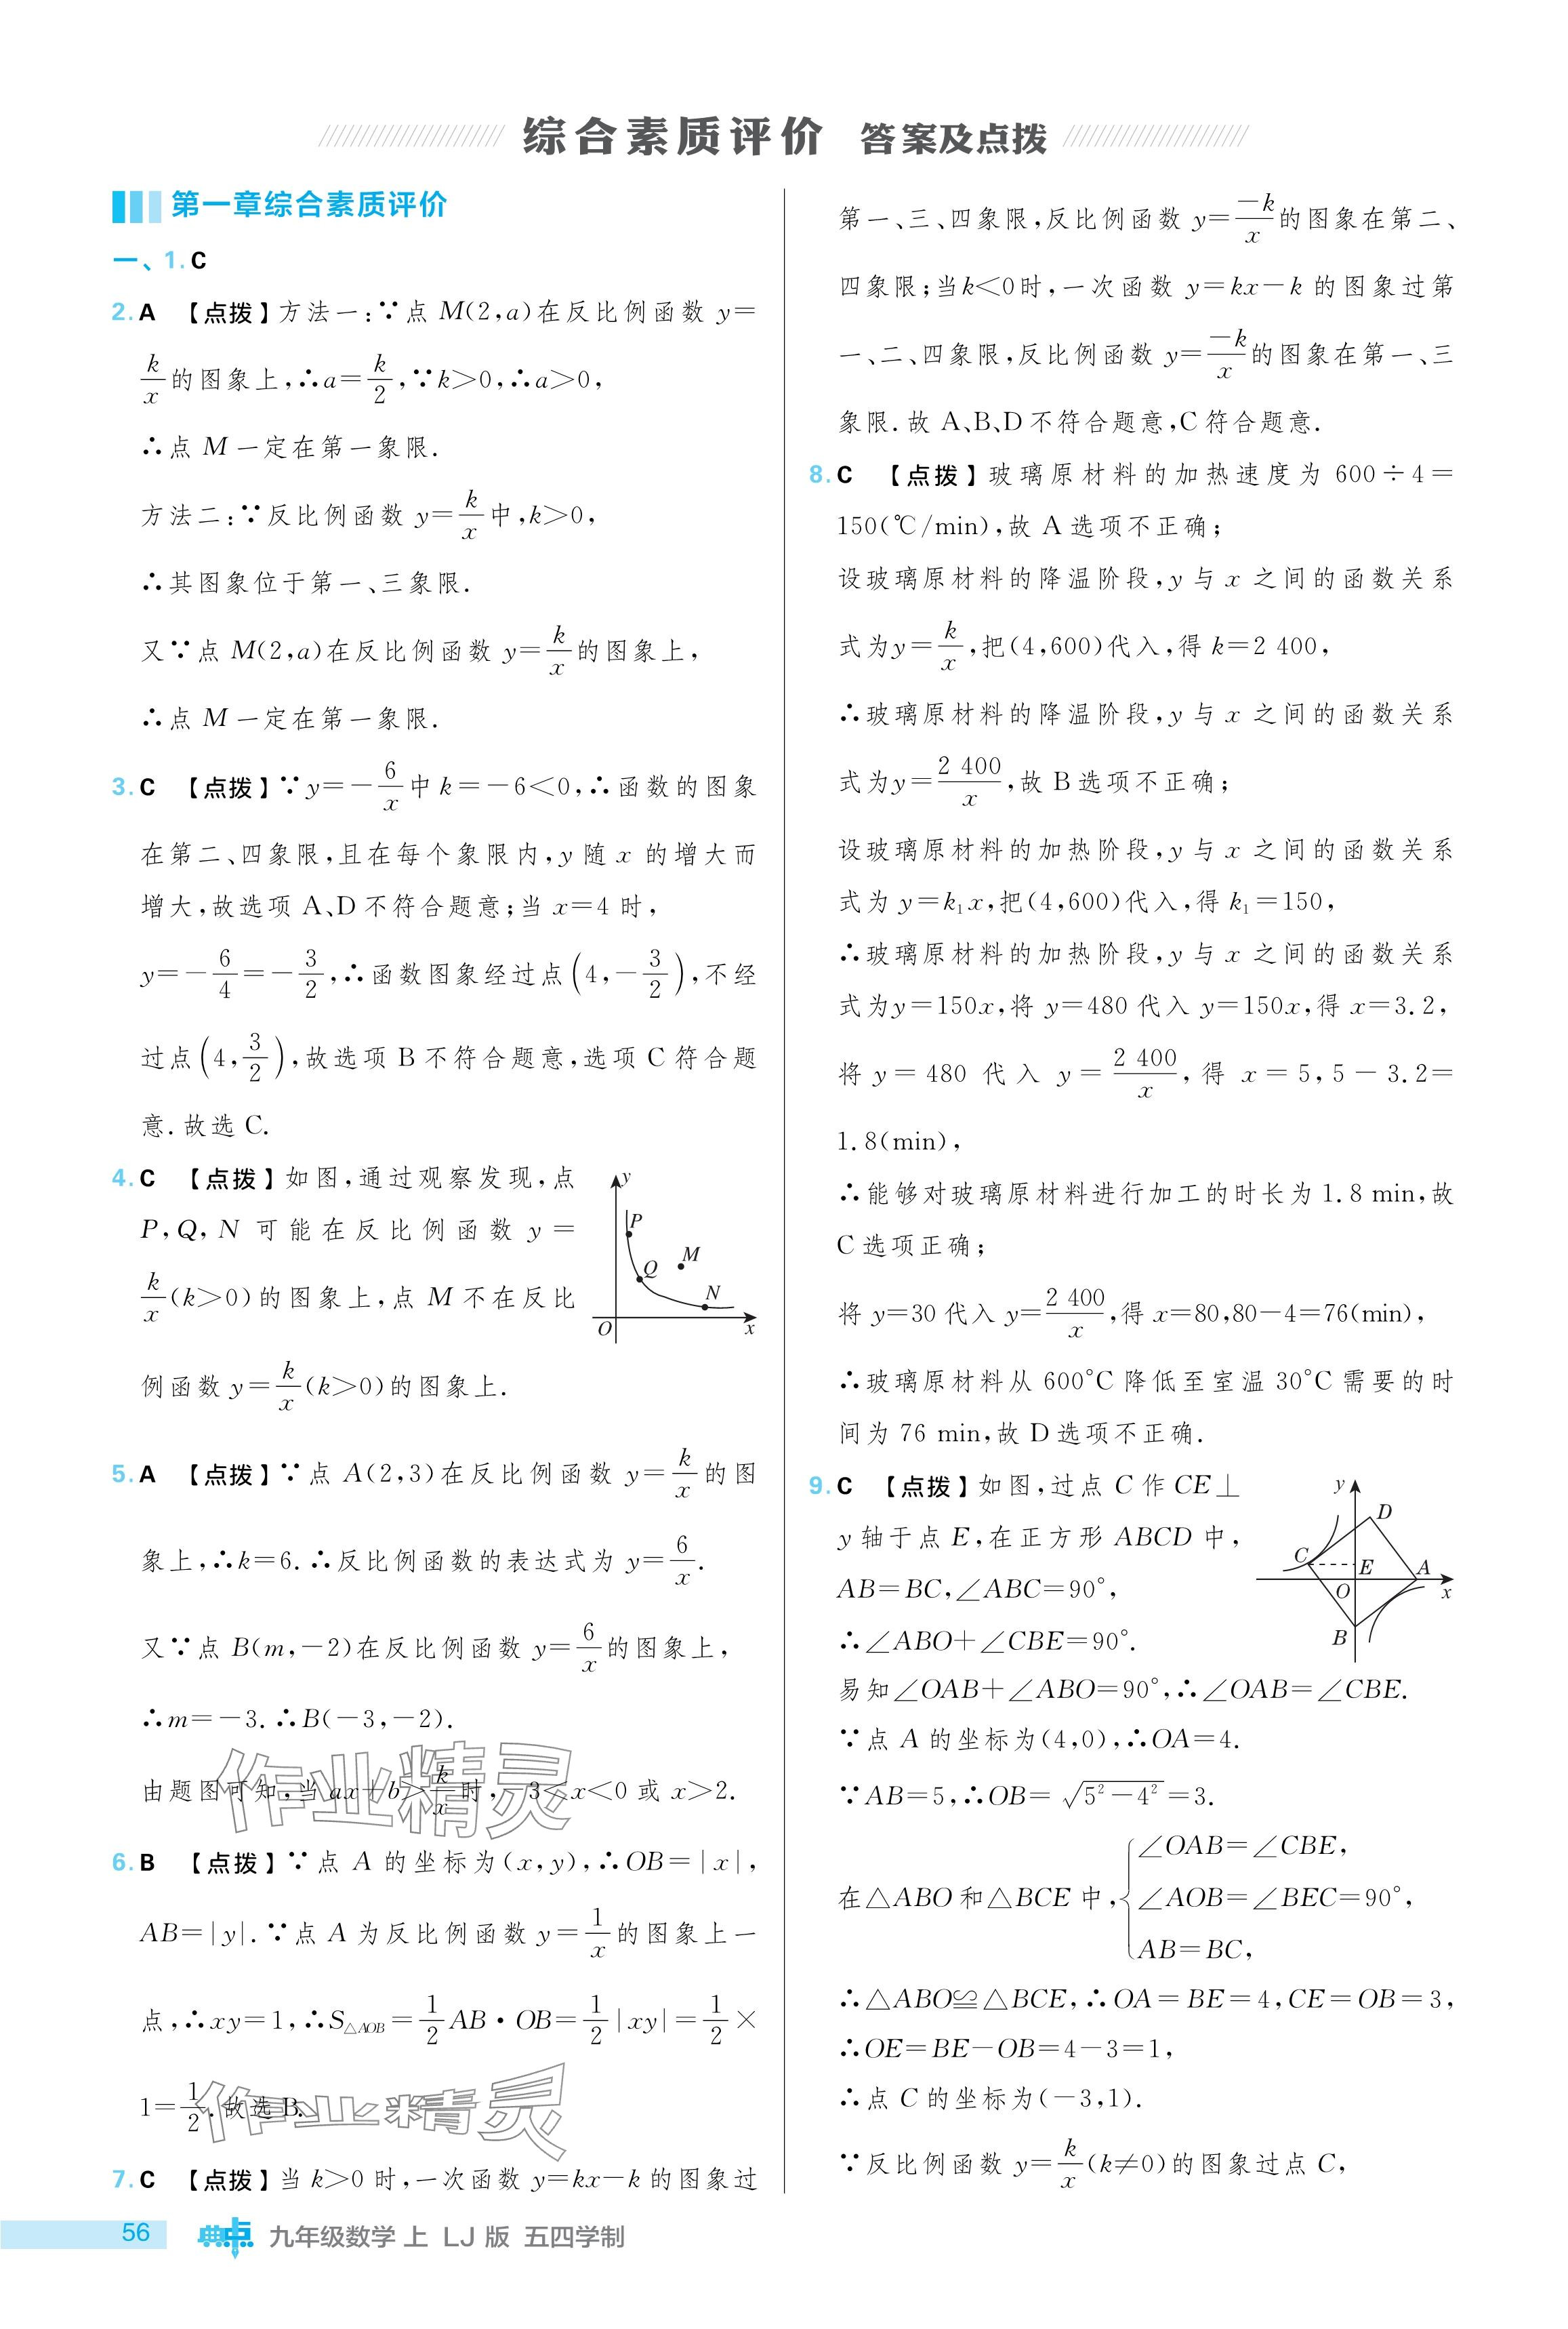 综合素质评价 答案及点拨
第一章综合素质评价
一、1.C
2.A 【点拨】方法一:∵点 M(2,a)在反比例函数 y=
k/x 的图象上,∴a=k/2,∵k>0,∴a>0,
∴点 M 一定在第一象限.
方法二:∵反比例函数 y=k/x 中,k>0,
∴其图象位于第一、三象限.
又∵点 M(2,a)在反比例函数 y=k/x 的图象上,
∴点 M 一定在第一象限.
3.C 【点拨】∵y=-6/x 中 k=-6<0,∴函数的图象
在第二、四象限,且在每个象限内,y 随 x 的增大而
增大,故选项 A、D 不符合题意;当 x=4 时,
y=-6/4=-3/2,∴函数图象经过点(4,-3/2),不经
过点(4,3/2),故选项 B 不符合题意,选项 C 符合题
意.故选 C.
4.C 【点拨】如图,通过观察发现,点
P,Q,N 可能在反比例函数 y=
k/x(k>0)的图象上,点 M 不在反比
例函数 y=k/x(k>0)的图象上.
y
P
Q
M
N
O
x
5.A 【点拨】∵点 A(2,3)在反比例函数 y=k/x 的图
象上,∴k=6.∴反比例函数的表达式为 y=6/x.
又∵点 B(m,-2)在反比例函数 y=6/x 的图象上,
∴m=-3.∴B(-3,-2).
由题图可知,当 ax+b>k/x 时,-3<x<0 或 x>2.
作业精灵
6.B 【点拨】∵点 A 的坐标为(x,y),∴OB=|x|,
AB=|y|.∵点 A 为反比例函数 y=1/x 的图象上一
点,∴xy=1,∴S△AOB=1/2 AB·OB=1/2|xy|=1/2×
1=1/2.故选 B.
作业精灵
7.C 【点拨】当 k>0 时,一次函数 y=kx-k 的图象过
第一、三、四象限,反比例函数 y=-k/x 的图象在第二、
四象限;当k<0时,一次函数 y=kx-k 的图象过第
一、二、四象限,反比例函数 y=-k/x 的图象在第一、三
象限.故 A、B、D 不符合题意,C 符合题意.
8.C 【点拨】玻璃原材料的加热速度为 600÷4=
150(℃/min),故 A 选项不正确;
设玻璃原材料的降温阶段,y 与 x 之间的函数关系
式为y=k/x,把(4,600)代入,得 k=2 400,
∴玻璃原材料的降温阶段,y 与 x 之间的函数关系
式为y=2 400/x,故 B选项不正确;
设玻璃原材料的加热阶段,y 与 x 之间的函数关系
式为 y=k₁x,把(4,600)代入,得 k₁=150,
∴玻璃原材料的加热阶段,y 与 x 之间的函数关系
式为y=150x,将 y=480 代入 y=150x,得 x=3.2,
将 y=480 代入 y=2 400/x,得 x=5,5-3.2=
1.8(min),
∴能够对玻璃原材料进行加工的时长为 1.8 min,故
C 选项正确;
将 y=30 代入 y=2 400/x,得 x=80,80-4=76(min),
∴玻璃原材料从 600℃ 降低至室温 30℃ 需要的时
间为 76 min,故 D 选项不正确.
9.C 【点拨】如图,过点 C 作 CE⊥
y 轴于点 E,在正方形 ABCD 中,
AB=BC,∠ABC=90°,
∴∠ABO+∠CBE=90°.
y
D
C
E
A
O
x
B
易知∠OAB+∠ABO=90°,∴∠OAB=∠CBE.
∵点 A 的坐标为(4,0),∴OA=4.
∵AB=5,∴OB=√(5²-4²)=3.
在△ABO 和△BCE 中,{∠OAB=∠CBE,
∠AOB=∠BEC=90°,
AB=BC,
∴△ABO≌△BCE,∴OA=BE=4,CE=OB=3,
∴OE=BE-OB=4-3=1,
∴点 C 的坐标为(-3,1).
∵反比例函数 y=k/x(k≠0)的图象过点 C,
56 点 九年级数学 上 LJ 版 五四学制